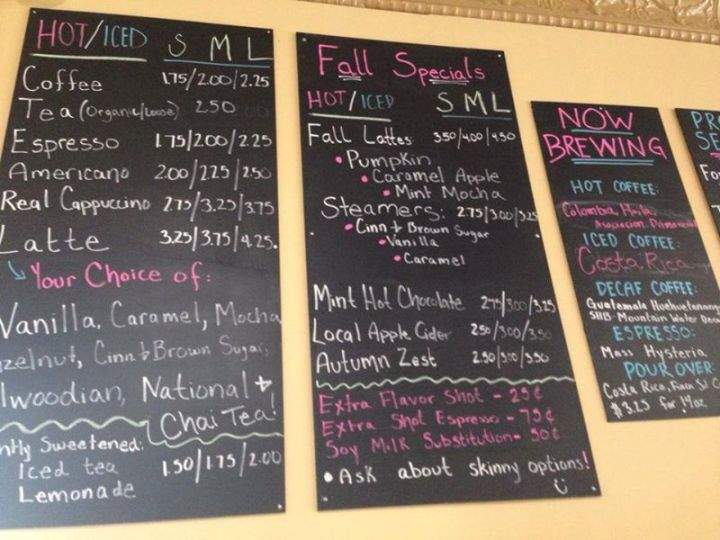 HOT/ICED S M L
Coffee 1.75/2.00/2.25
Tea (Organic/Loose) 2.50
Espresso 1.75/2.00/2.25
Americano 2.00/2.25/2.50
Real Cappuccino 2.75/3.25/3.75
Latte 3.25/3.75/4.25
Your Choice of:
Vanilla, Caramel, Mocha
Cinn + Brown Sugar,
National +
Chai Tea!
Sweetened:
Iced tea 1.50/1.75/2.00
Lemonade
Fall Specials
HOT/ICED S M L
Fall Lattes 3.50/4.00/4.50
• Pumpkin
• Caramel Apple
• Mint Mocha
Steamers: 2.75/3.00/3.25
• Cinn + Brown Sugar
• Vanilla
• Caramel
Mint Hot Chocolate 2.75/3.00/3.25
Local Apple Cider 2.50/3.00/3.50
Autumn Zest 2.50/3.00/3.50
Extra Flavor Shot - 25¢
Extra Shot Espresso - 75¢
Soy Milk Substitution - 50¢
• Ask about skinny options!
NOW
BREWING
HOT COFFEE:
Colombia Huila
Asociacion
ICED COFFEE:
Costa Rica
DECAF COFFEE:
Guatemala
SHB - Mountain Water
ESPRESSO:
Mass Hysteria
POUR OVER:
Costa Rica, Finca
$3.25 for 14oz